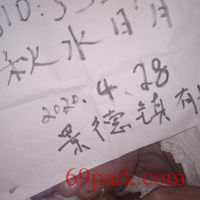 秋水日月
2020.4.28
景德镇有
69park.com